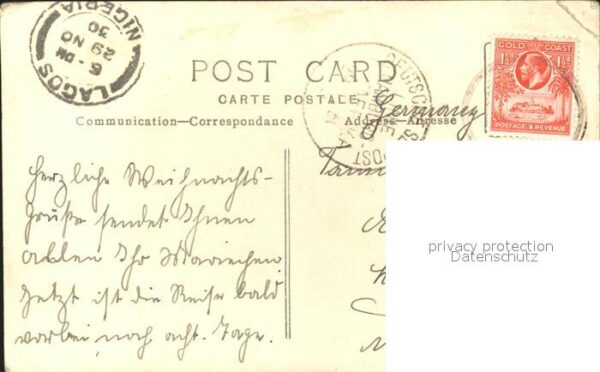 LAGOS NIGERIA
6 - PM
29 NO
30
POST CARD
CARTE POSTALE
Communication—Correspondence
Address—Adresse
GOLD COAST
1½ 1½
POSTAGE & REVENUE
DEUTSCHE
POST
Germany
Herzliche Weihnachts-
grüße sendet Ihnen
allen Ihr Mariechen
Jetzt ist die Reise bald
vorbei, noch acht. Tage.
privacy protection
Datenschutz